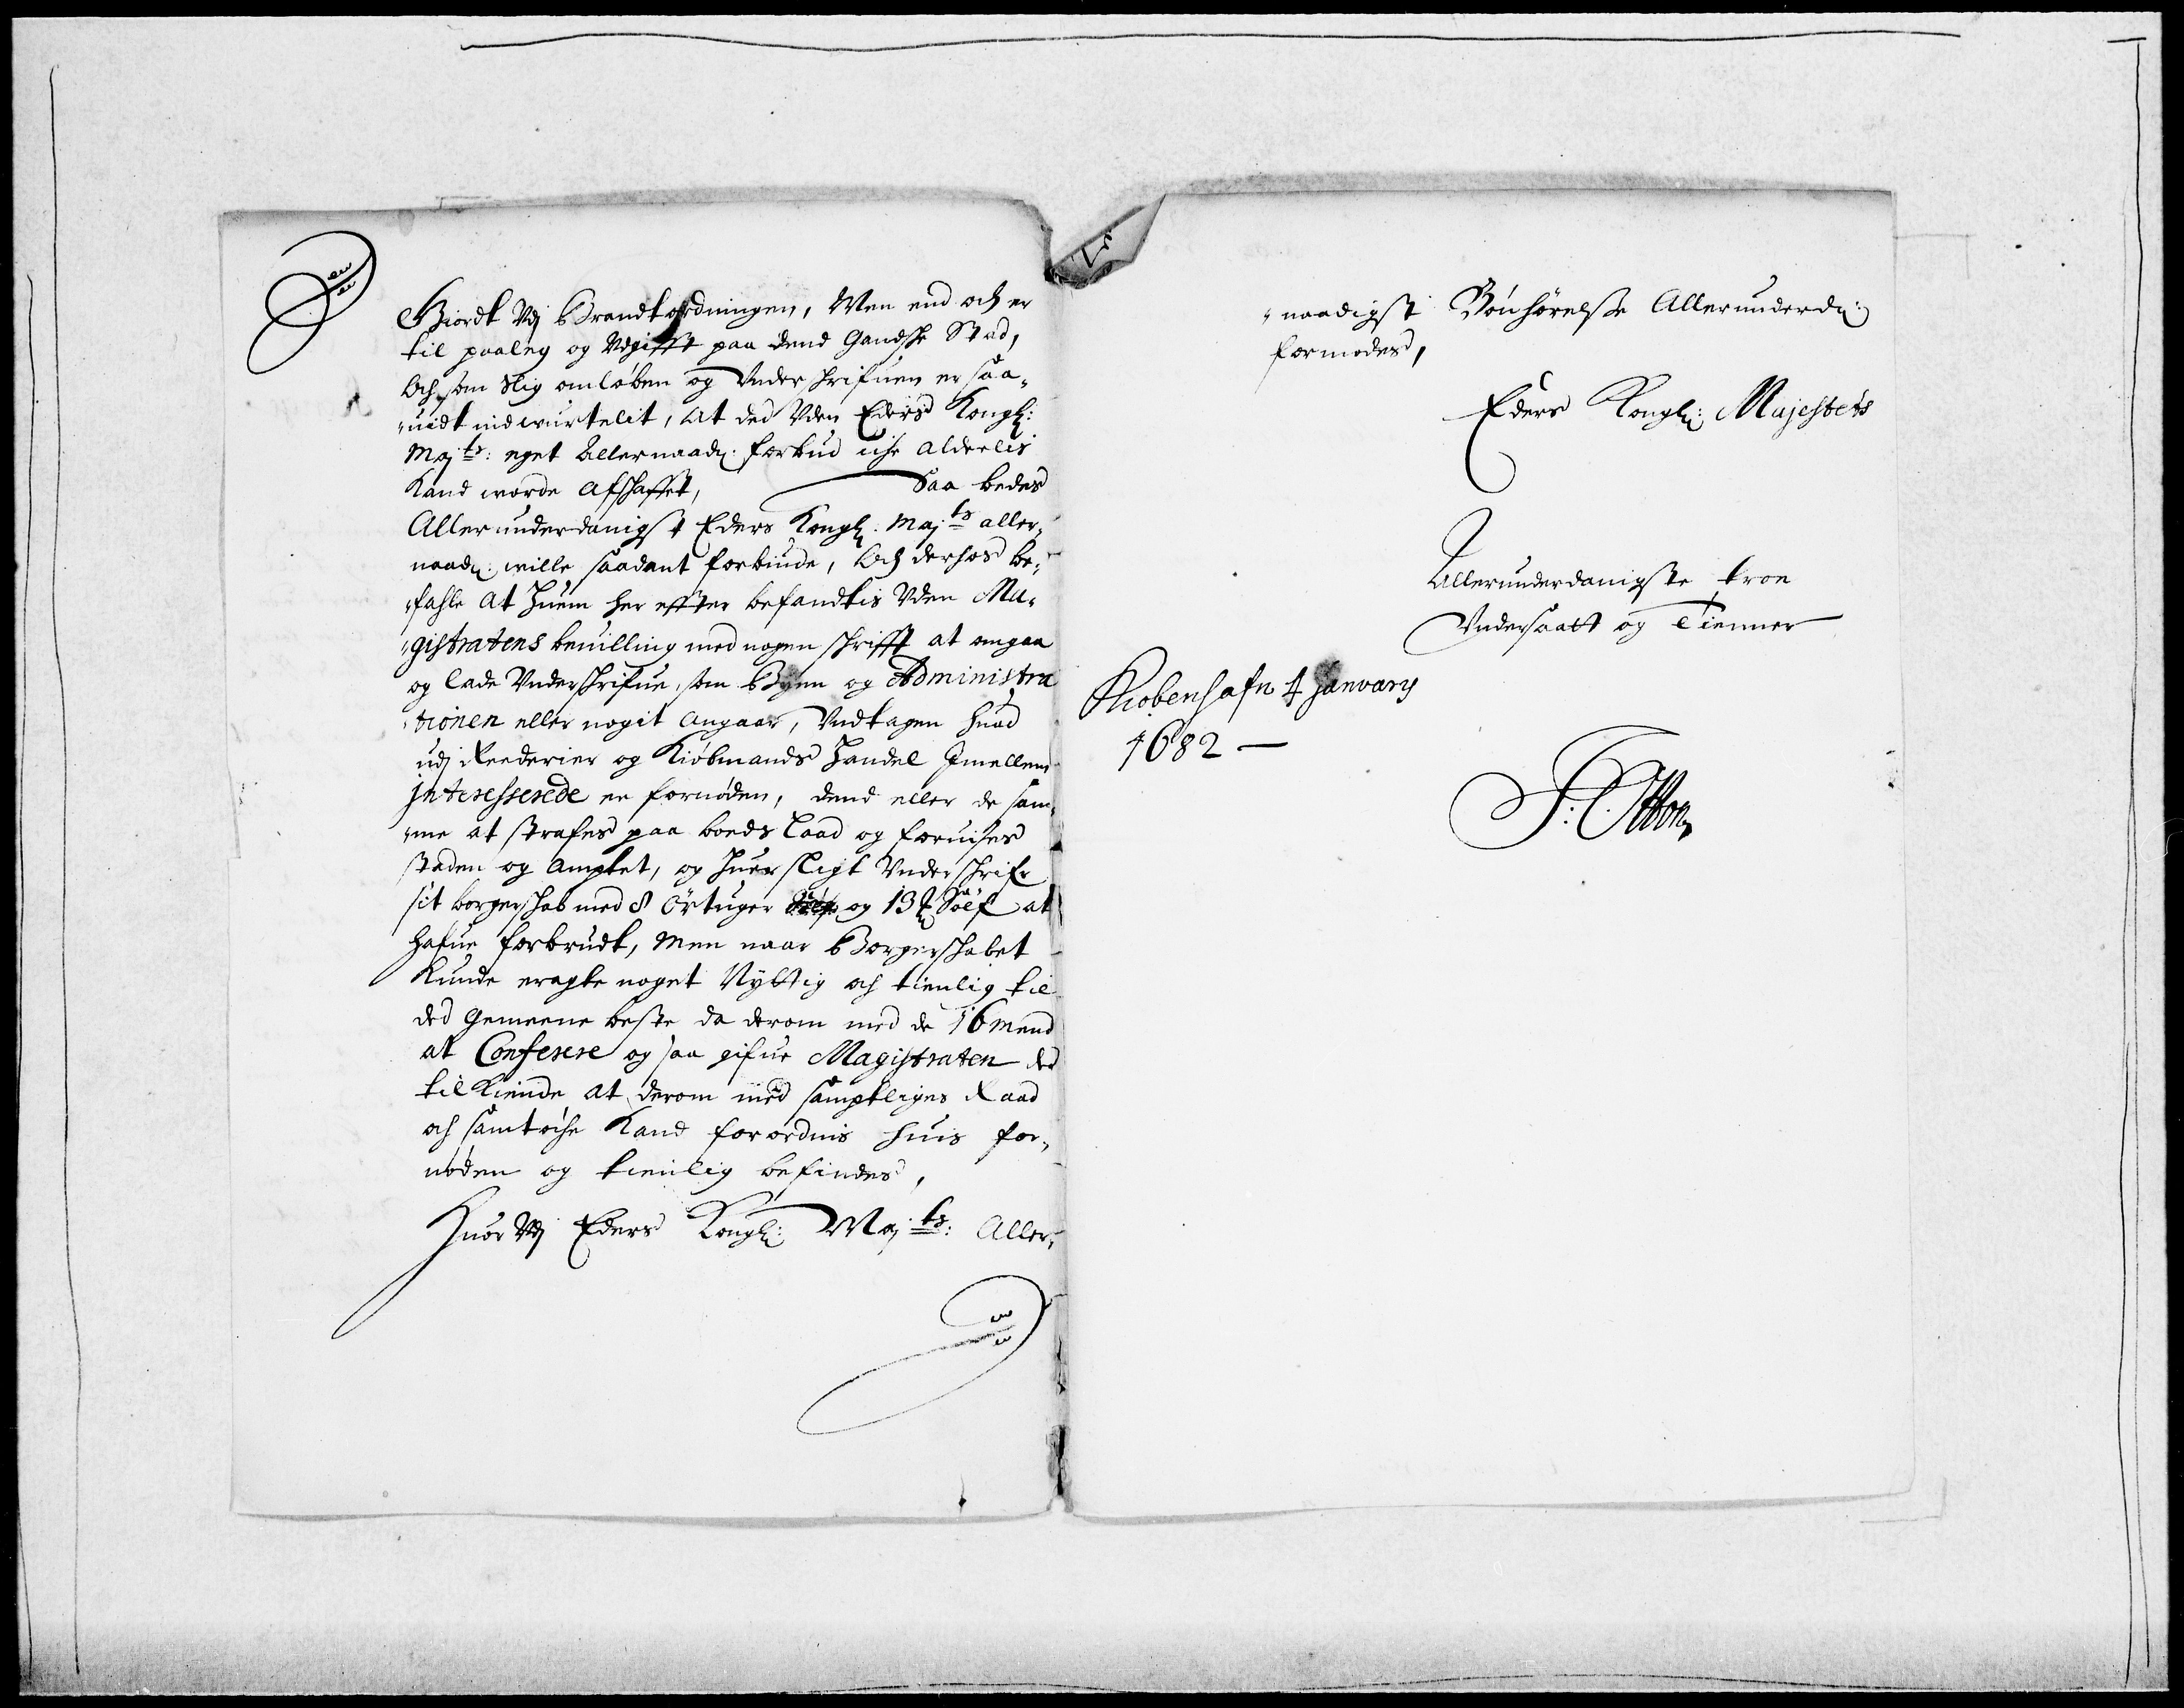 Giordt Vdj Brandtordningen, Men end och er
til paaleg og Vdgifft paa dend Gandske Stad,
Och som slig omløben og Vnderskrifuen er saa„
„uidt indwurtelit, at ded Vden Eders Kongl:
Maj:ts: eget Allernaad: forbud iche alderlis
Kand worde Afskaffet, Saa bedes
Allerunderdanigst Eders Kongl: Maj:ts aller„
naad: wille saadant forbiude, Och derhos be„
„fahle At huem her effter befandtis Vden Ma„
„gistratens beuilling med nogen skrifft at omgaa
og lade Vnderskrifue, som Byen og Administra
„tionen eller nogit Angaar, Vndtagen huad
udj Reederier og Kiøbmands Handel Imellem
Interesserede er fornøden, dend eller de sam„
„me at strafes paa boeds laad og foruises
staden og Amptet, og huer sligt Vnderskrifr
sit borgerskab med 8 Örtuger og 13 Sølf at
hafue forbrudt, Men naar Borgerskabet
Kunde eragte noget Nyttig och tienlig til
ded Gemeene beste da derom med de 16 mend
at Conferere og saa gifue Magistraten ded
tilkiende at derom med samptliges Raad
och samtøche Kand forordnis huis for„
nøden og tienlig befindes,
Huor Vdj Eders Kongl: Maj:ts: Aller„
„naadigst Bönhørelse Allerunderd:
formodes,
Eders Kongl: Majestets
Allerunderdanigste troe
Vndersaatt og Tienner
Kiobenhafn 4 January
1682 —